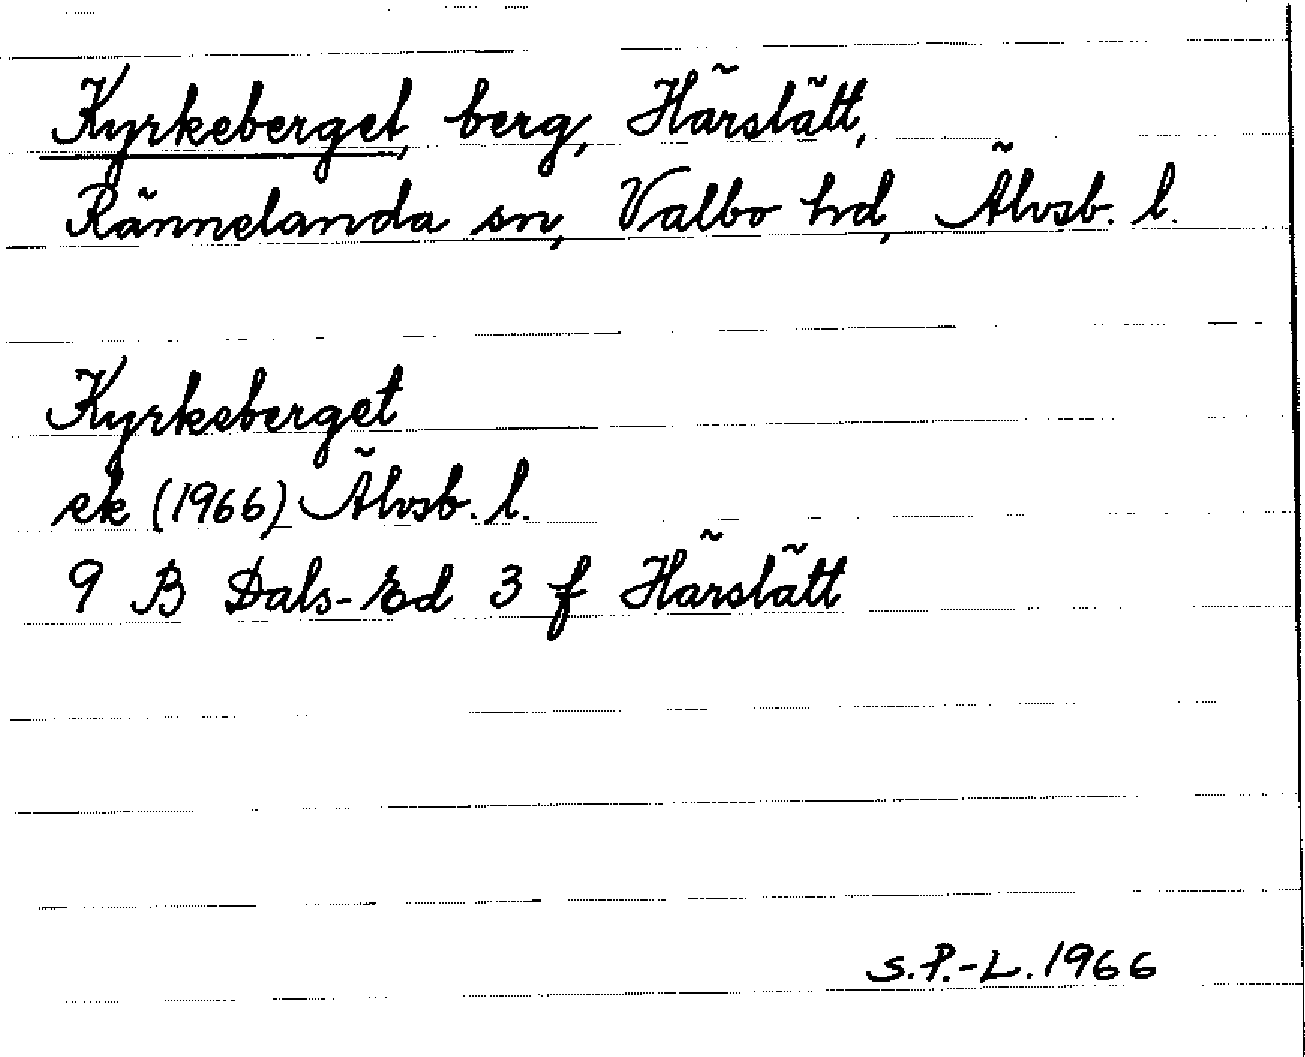 Kyrkeberget, berg, Härslätt,
Rännelanda sn, Valbo hd, Älvsb. l.
Kyrkeberget
ek (1966) Älvsb. l.
9 B Dals-Ed 3 f Härslätt
S.P.-L. 1966